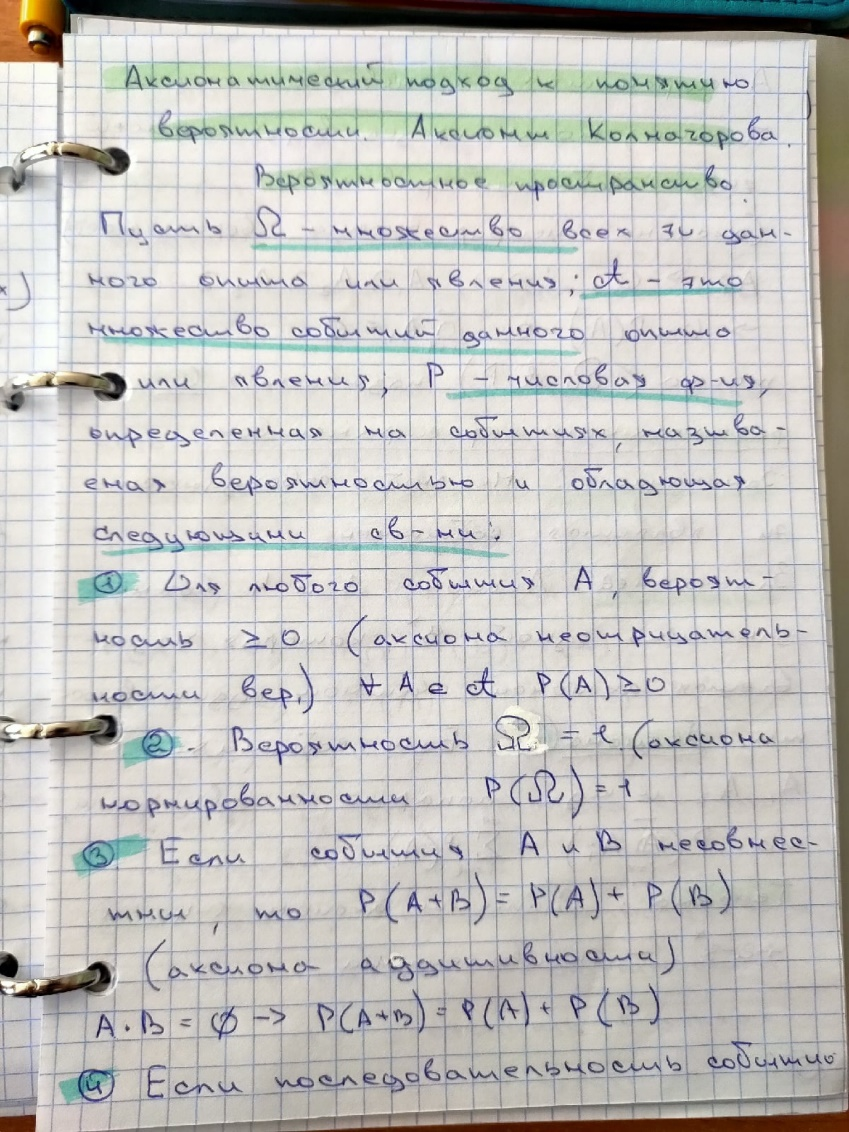 Аксиоматический подход к понятию
вероятности. Аксиомы Колмогорова.
Вероятностное пространство.
Пусть Ω - множество всех эи дан-
ного опыта или явления; 𝒜 - это
множество событий данного опыта
или явления; P - числовая ф-ия,
определенная на событиях, называ-
емая вероятностью и обладающая
следующими св-ми:
① Для любого события A, вероят-
ность ≥ 0 (аксиома неотрицатель-
ности вер.) ∀ A ∈ 𝒜 P(A) ≥ 0
②. Вероятность Ω = 1 (аксиома
нормированности P(Ω) = 1
③ Если события A и B несовмес-
тны, то P(A+B) = P(A) + P(B)
(аксиома аддитивности)
A · B = ∅ -> P(A+B) = P(A) + P(B)
④ Если последовательность событию